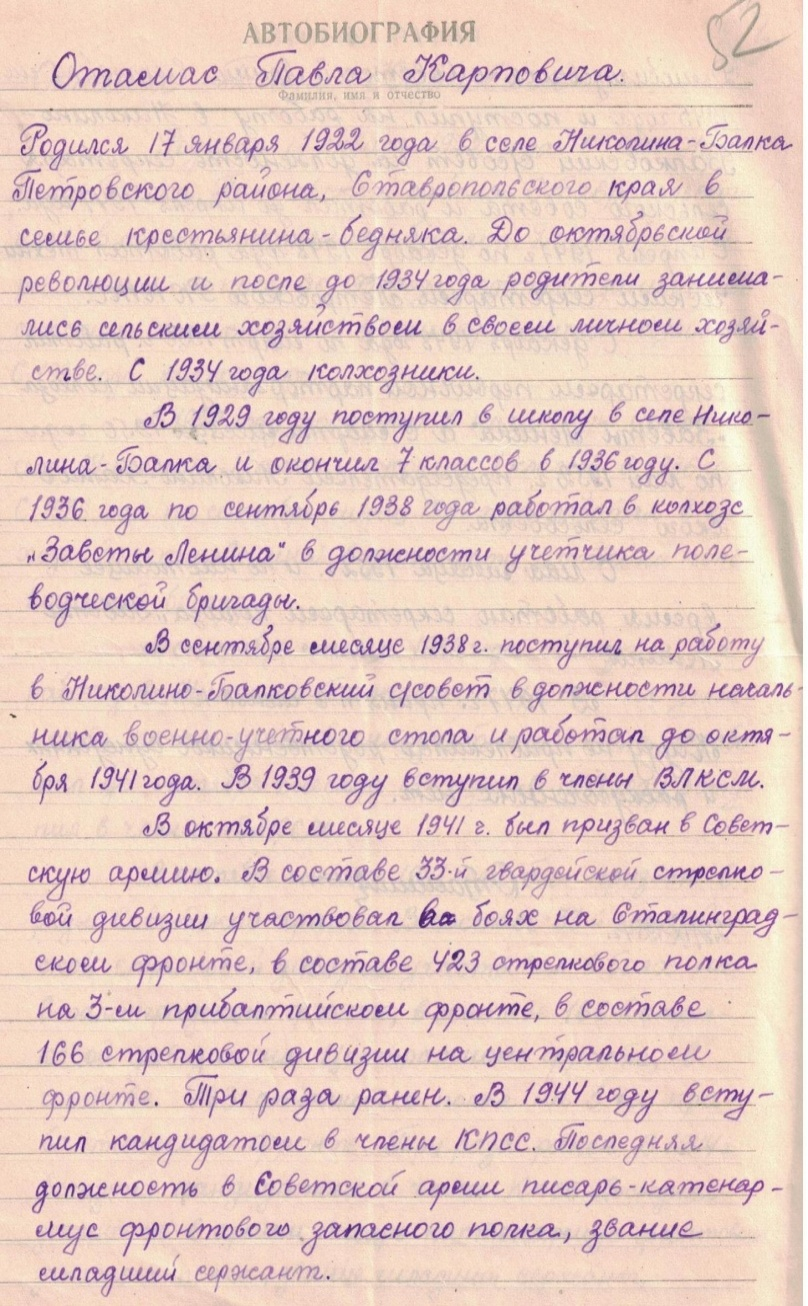 52
АВТОБИОГРАФИЯ
Отамас Павла Карповича.
Фамилия, имя и отчество
Родился 17 января 1922 года в селе Николина-Балка
Петровского района, Ставропольского края в
семье крестьянина-бедняка. До октябрьской
революции и после до 1934 года родители занима-
лись сельским хозяйством в своем личном хозяй-
стве. С 1934 года колхозники.
В 1929 году поступил в школу в селе Нико-
лина-Балка и окончил 7 классов в 1936 году. С
1936 года по сентябрь 1938 года работал в колхозе
„Заветы Ленина" в должности учетчика поле-
водческой бригады.
В сентябре месяце 1938 г. поступил на работу
в Николино-Балковский с/совет в должности началь-
ника военно-учетного стола и работал до октя-
бря 1941 года. В 1939 году вступил в члены ВЛКСМ.
В октябре месяце 1941 г. был призван в Совет-
скую армию. В составе 33-й гвардейской стрелко-
вой дивизии участвовал в боях на Сталинград-
ском фронте, в составе 423 стрелкового полка
на 3-м прибалтийском фронте, в составе
166 стрелковой дивизии на центральном
фронте. Три раза ранен. В 1944 году всту-
пил кандидатом в члены КПСС. Последняя
должность в Советской армии писарь-каптенар-
мус фронтового запасного полка, звание
младший сержант.